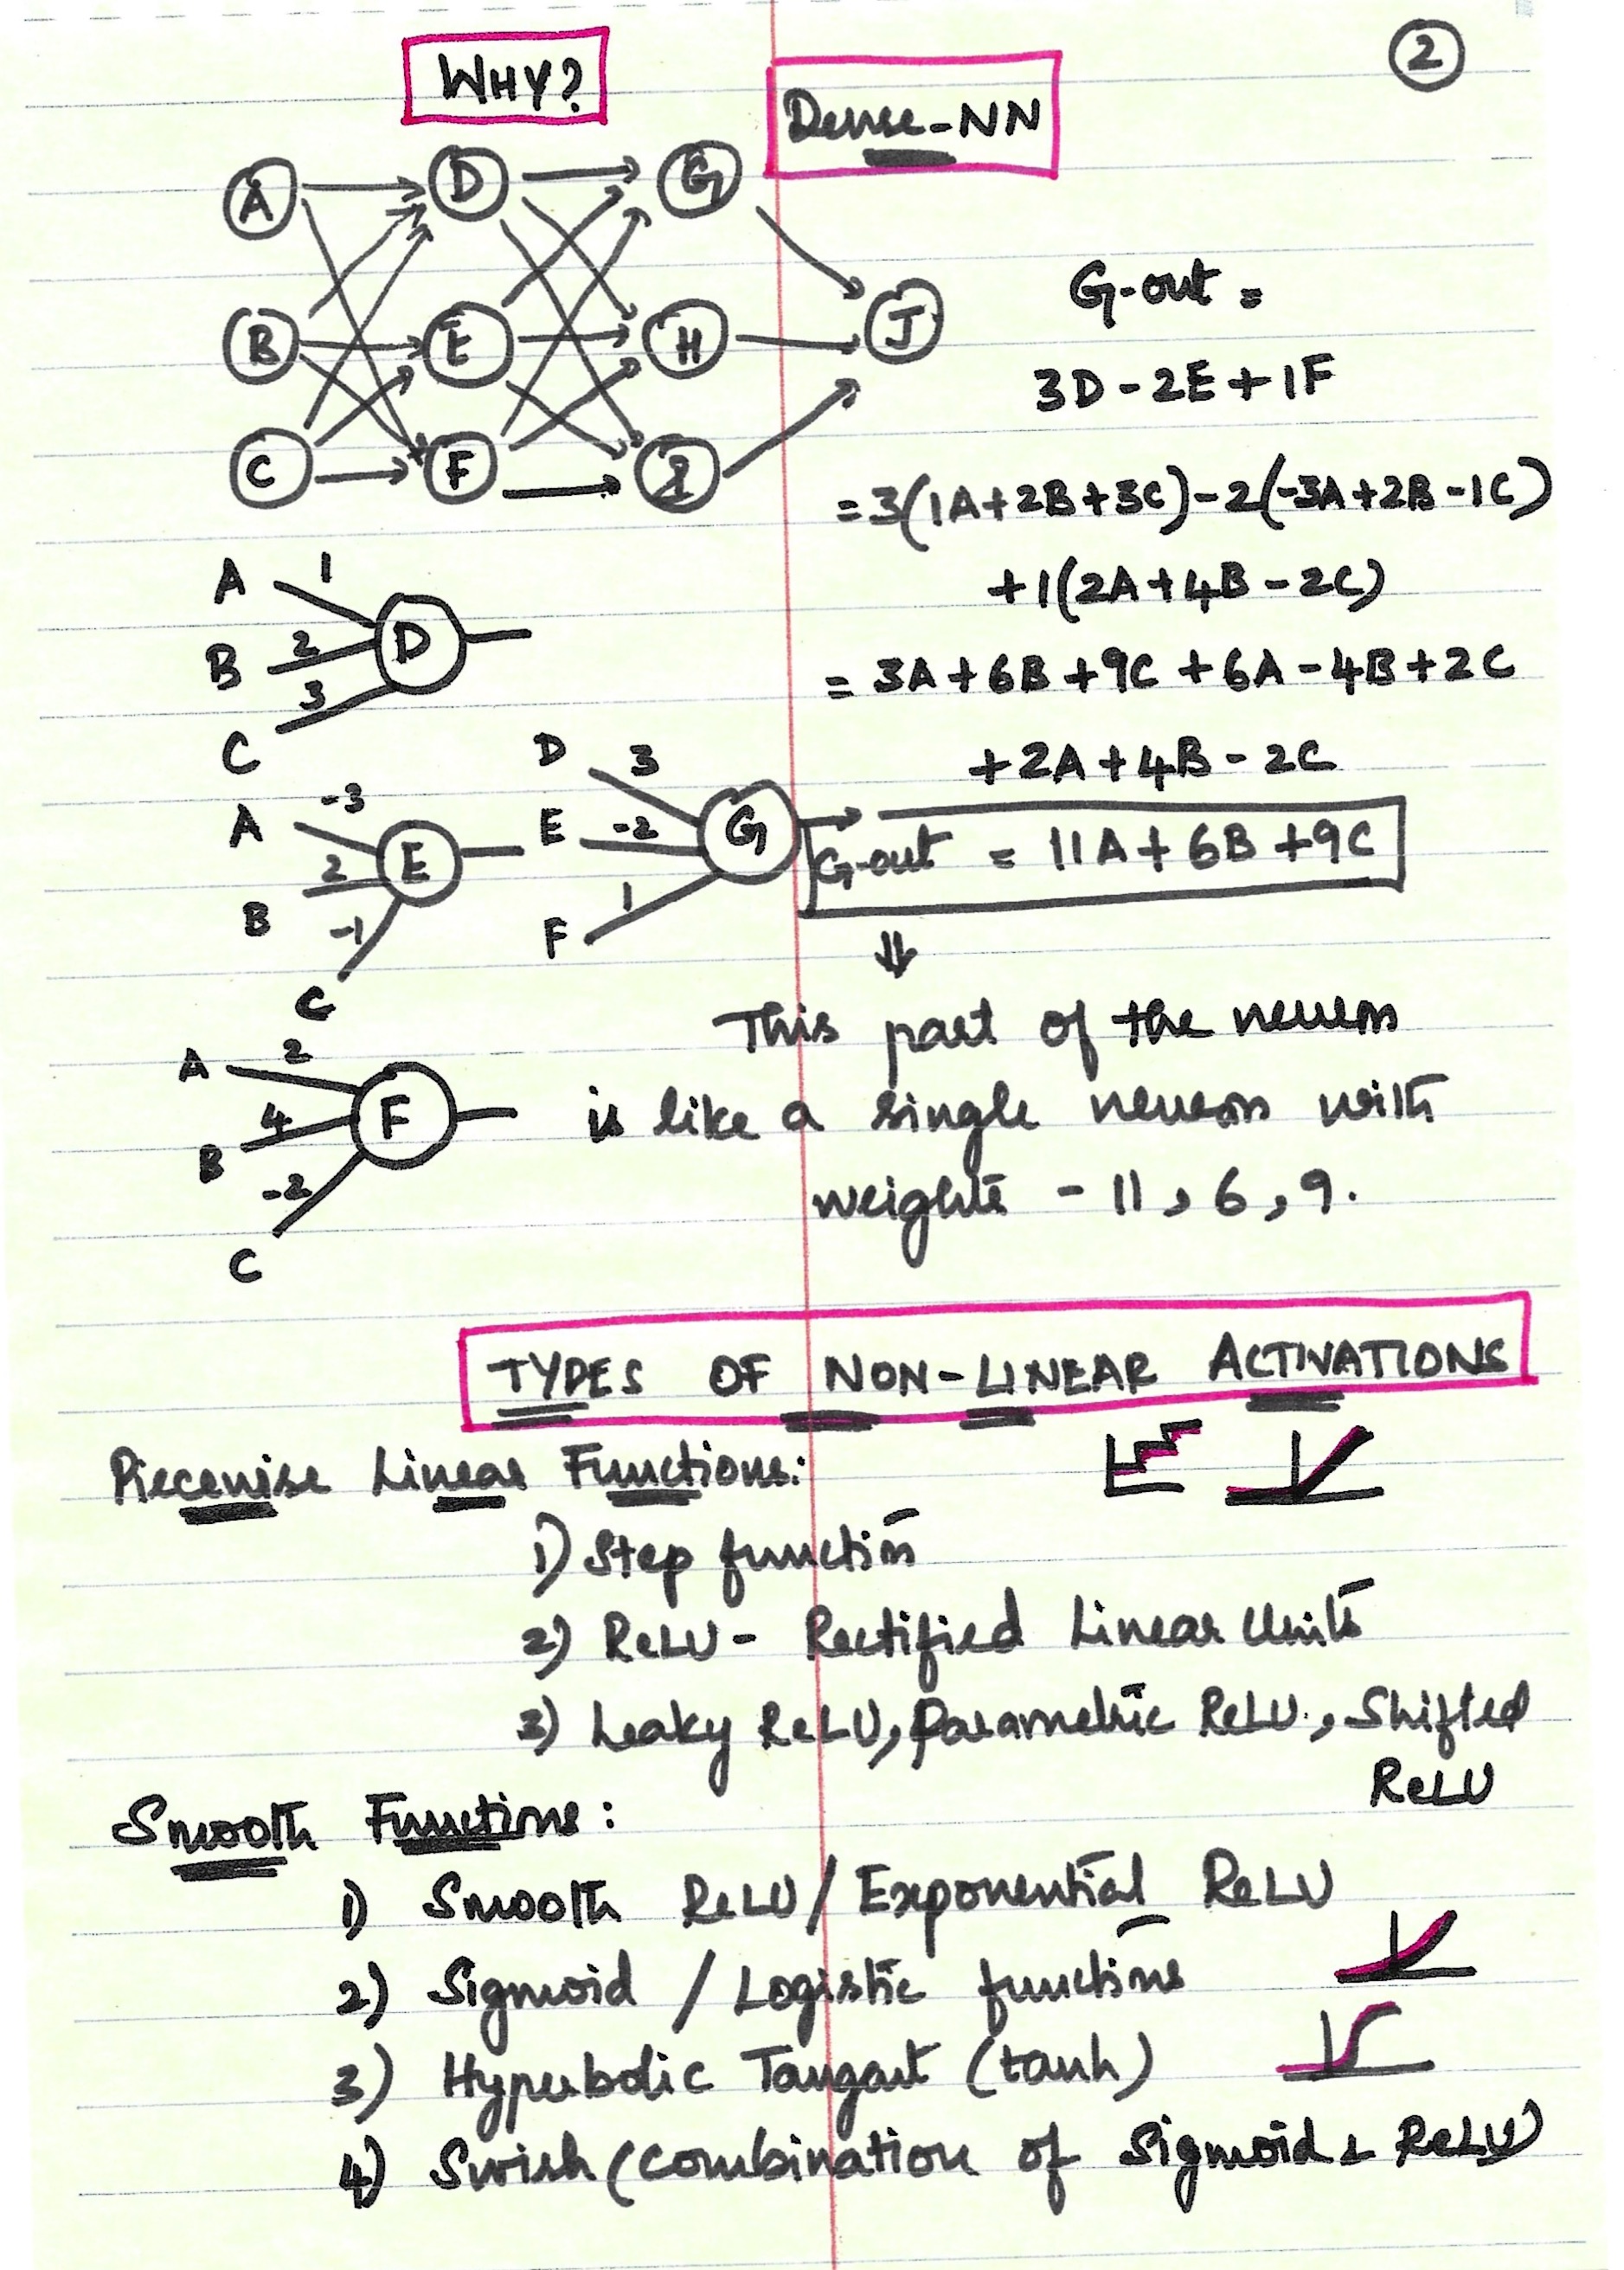 2
WHY?
Dense-NN
A D G
B E H J
C F I
G-out =
3D - 2E + 1F
= 3(1A + 2B + 3C) - 2(-3A + 2B - 1C)
+ 1(2A + 4B - 2C)
= 3A + 6B + 9C + 6A - 4B + 2C
+ 2A + 4B - 2C
G-out = 11A + 6B + 9C
A 1
B 2 D
3
C
A -3
B 2 E
-1
C
D 3
E -2 G
F 1
A 2
B 4 F
-2
C
This part of the neuron
is like a single neuron with
weights - 11, 6, 9.
TYPES OF NON-LINEAR ACTIVATIONS
Piecewise Linear Functions:
1) Step function
2) ReLU - Rectified Linear Units
3) Leaky ReLU, Parametric ReLU., Shifted
ReLU
Smooth Functions:
1) Smooth ReLU / Exponential ReLU
2) Sigmoid / Logistic functions
3) Hyperbolic Tangant (tanh)
4) Swish (combination of Sigmoid & ReLU)